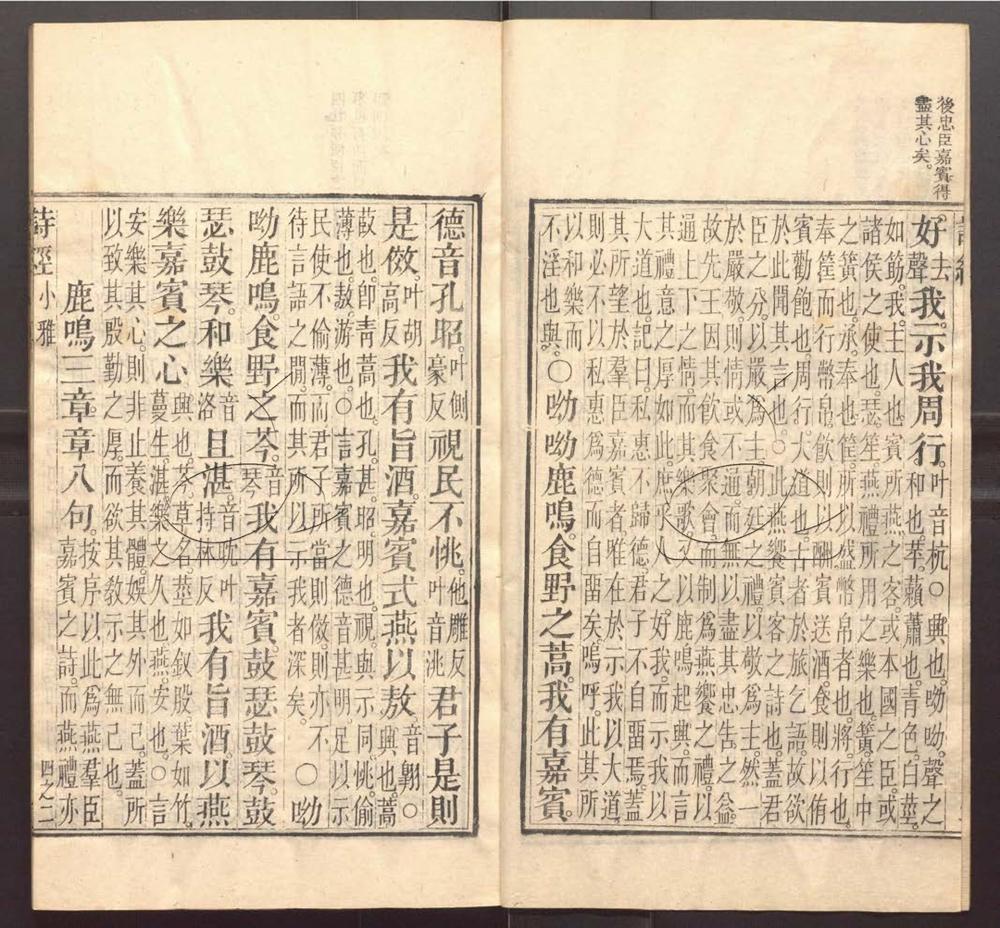 後忠臣嘉賓得
盡其心矣。
好去聲我。示我周行。叶音杭○興也。呦呦。聲之和也。苹。藾蕭也。青色。白莖。
如筯。我。主人也。賓。所燕之客。或本國之臣。或
諸侯之使也。瑟笙。燕禮所用之樂也。簧。笙中
之簧也。承。奉也。筐。所以盛幣帛者也。將。行也。
奉筐而行幣帛。飲則以酬賓送酒。食則以侑
賓勸飽也。周行。大道也。古者於旅乞語。故欲
於此聞其言也。○此燕饗賓客之詩也。蓋君
臣之分。以嚴爲主。朝廷之禮。以敬爲主。然一
於嚴敬。則情或不通。而無以盡其忠告之益。
故先王因其飲食聚會。而制爲燕饗之禮。以
通上下之情。而其樂歌又以鹿鳴起興。而言
其禮意之厚如此。庶乎人之好我。而示我以
大道也。記曰。私惠不歸德。君子不自畱焉。蓋
其所望於羣臣嘉賓者。唯在於示我以大道。
則必不以私惠爲德而自畱矣。嗚呼。此其所
以和樂而不淫也與。○呦呦鹿鳴。食野之蒿。我有嘉賓。
德音孔昭。叶側豪反視民不恌。他雕反叶音洮君子是則
是傚。叶胡高反我有旨酒。嘉賓式燕以敖。音翱○興也。蒿
菣也。卽青蒿也。孔。甚。昭。明也。視。與示同。恌。偷
薄也。敖。游也。○言嘉賓之德音甚明。足以示
民使不偷薄。而君子所當則傚。則亦不
待言語之閒。而其所以示我者深矣。○呦
呦鹿鳴。食野之芩。音琴我有嘉賓。鼓瑟鼓琴。鼓
瑟鼓琴。和樂音洛且湛。音耽叶持林反我有旨酒。以燕
樂嘉賓之心。興也。芩。草名。莖如釵股。葉如竹。蔓生。湛。樂之久也。燕。安也。○言
安樂其心。則非止養其體。娛其外而已。蓋所
以致其殷勤之厚。而欲其教示之無已也。
鹿鳴三章。章八句。按序以此爲燕羣臣嘉賓之詩。而燕禮亦
詩經 小雅 四之二